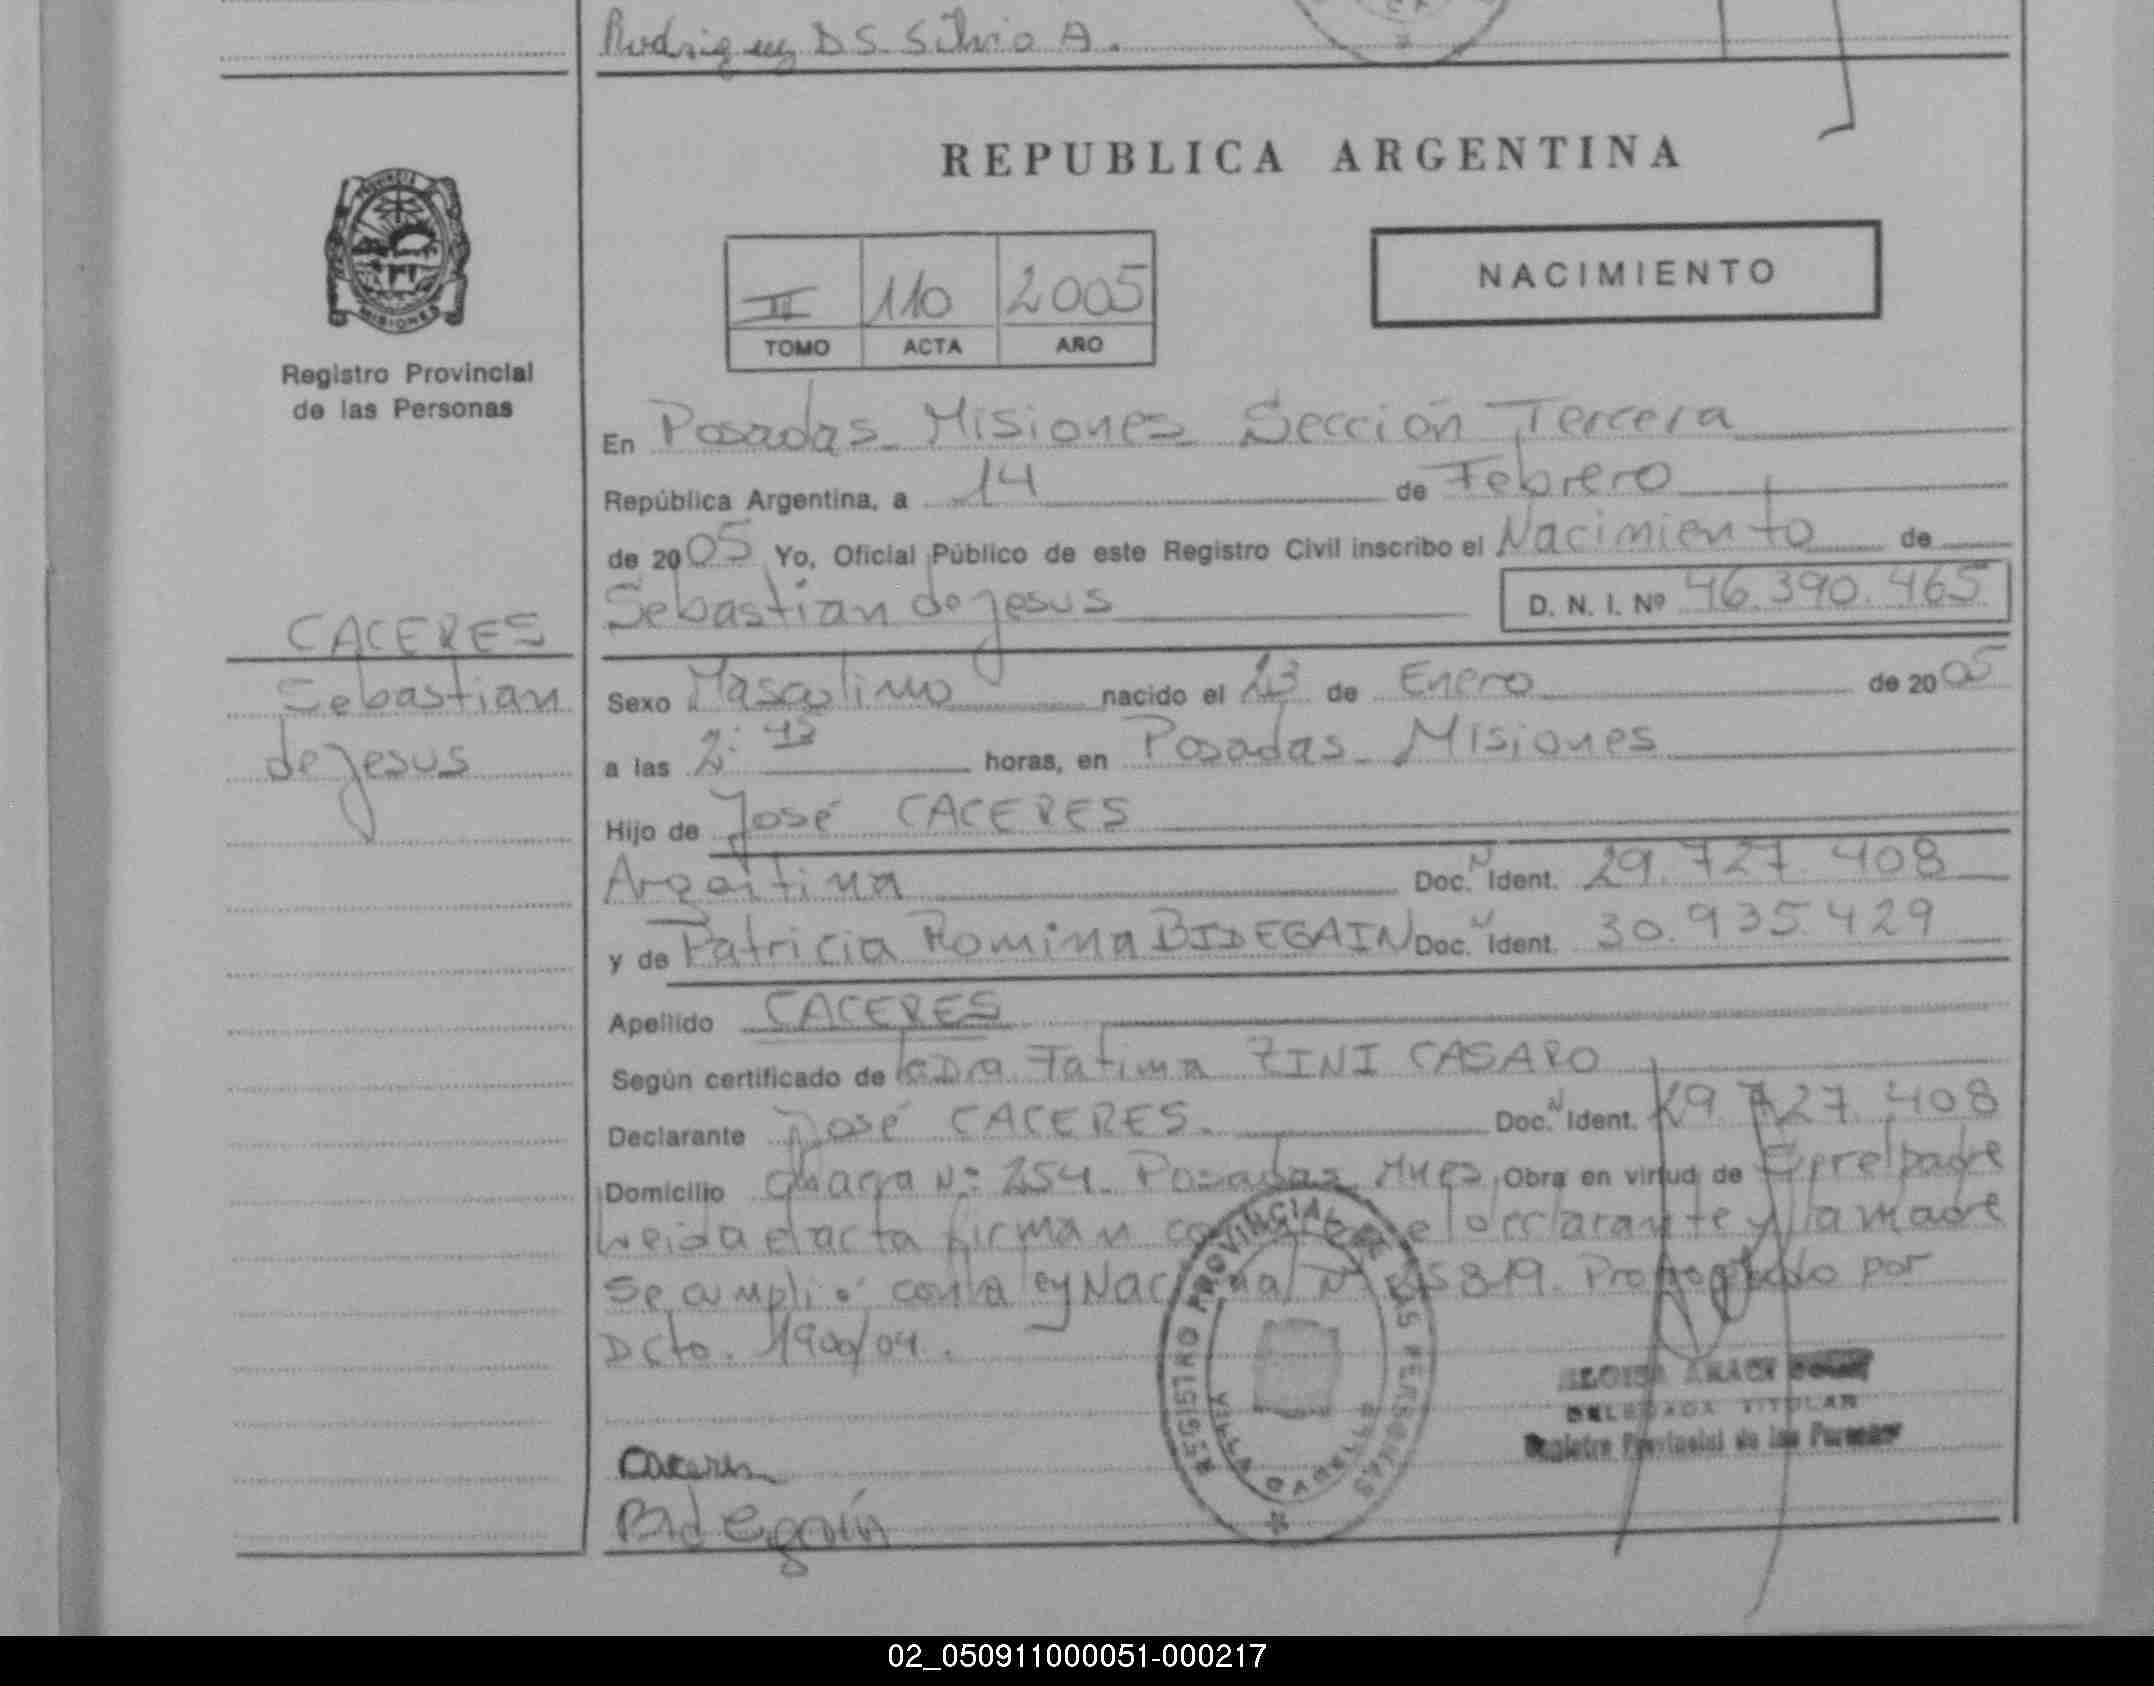 Rodriguez D S. Silvio A.
REPUBLICA ARGENTINA
PROVINCIA DE
MISIONES
Registro Provincial
de las Personas
II 110 2005
TOMO ACTA AÑO
NACIMIENTO
En Posadas Misiones Sección Tercera
República Argentina, a 14 de Febrero
de 2005 Yo, Oficial Público de este Registro Civil inscribo el Nacimiento de
Sebastian de Jesus D. N. I. Nº 46.390.465
CACERES
Sebastian
de Jesus
Sexo Masculino nacido el 23 de Enero de 2005
a las 2:43 horas, en Posadas Misiones
Hijo de José CACERES
Argentina Doc. N Ident. 29.727.408
y de Patricia Romina BIDEGAIN Doc. N Ident. 30.935.429
Apellido CACERES
Según certificado de la Dra Fatima ZINI CASARO
Declarante José CACERES. Doc. N Ident. 29.727.408
Domicilio Nº 254. Posadas Mnes Obra en virtud de Ser el padre
Leida el acta firman el declarante y la madre
Se cumplió con la ley Nacional Nº Prorrogado por
Dcto. 1900/04.
REGISTRO PROVINCIAL DE LAS PERSONAS
DELEGADA TITULAR
Registro Provincial de las Personas
Caceres
Bidegain
02_050911000051-000217